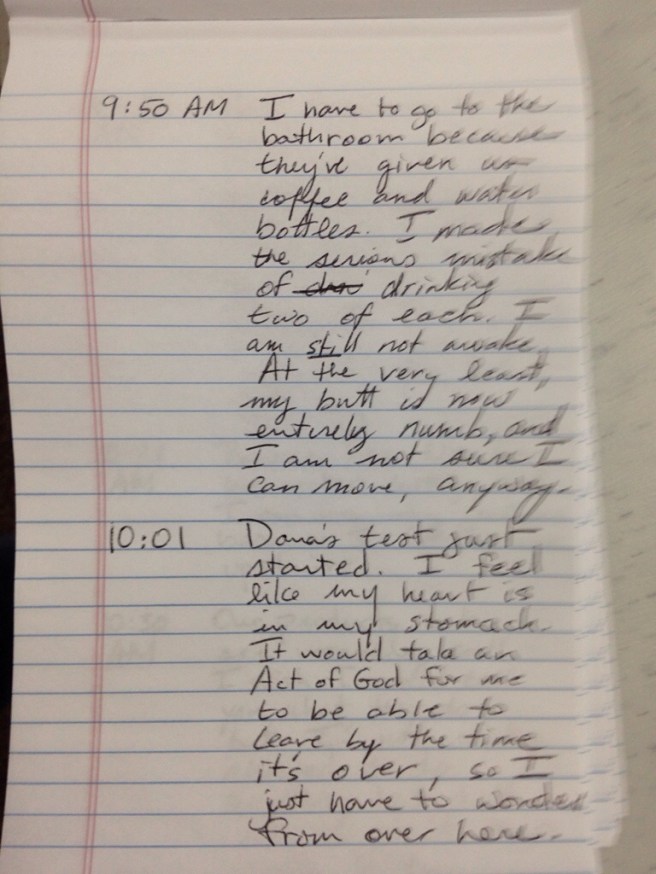 9:50 AM I have to go to the
bathroom because
they've given us
coffee and water
bottles. I made
the serious mistake
of drinking
two of each. I
am still not awake.
At the very least,
my butt is now
entirely numb, and
I am not sure I
can move, anyway.
10:01 Dana's test just
started. I feel
like my heart is
in my stomach.
It would take an
Act of God for me
to be able to
leave by the time
it's over, so I
just have to wonder
from over here.